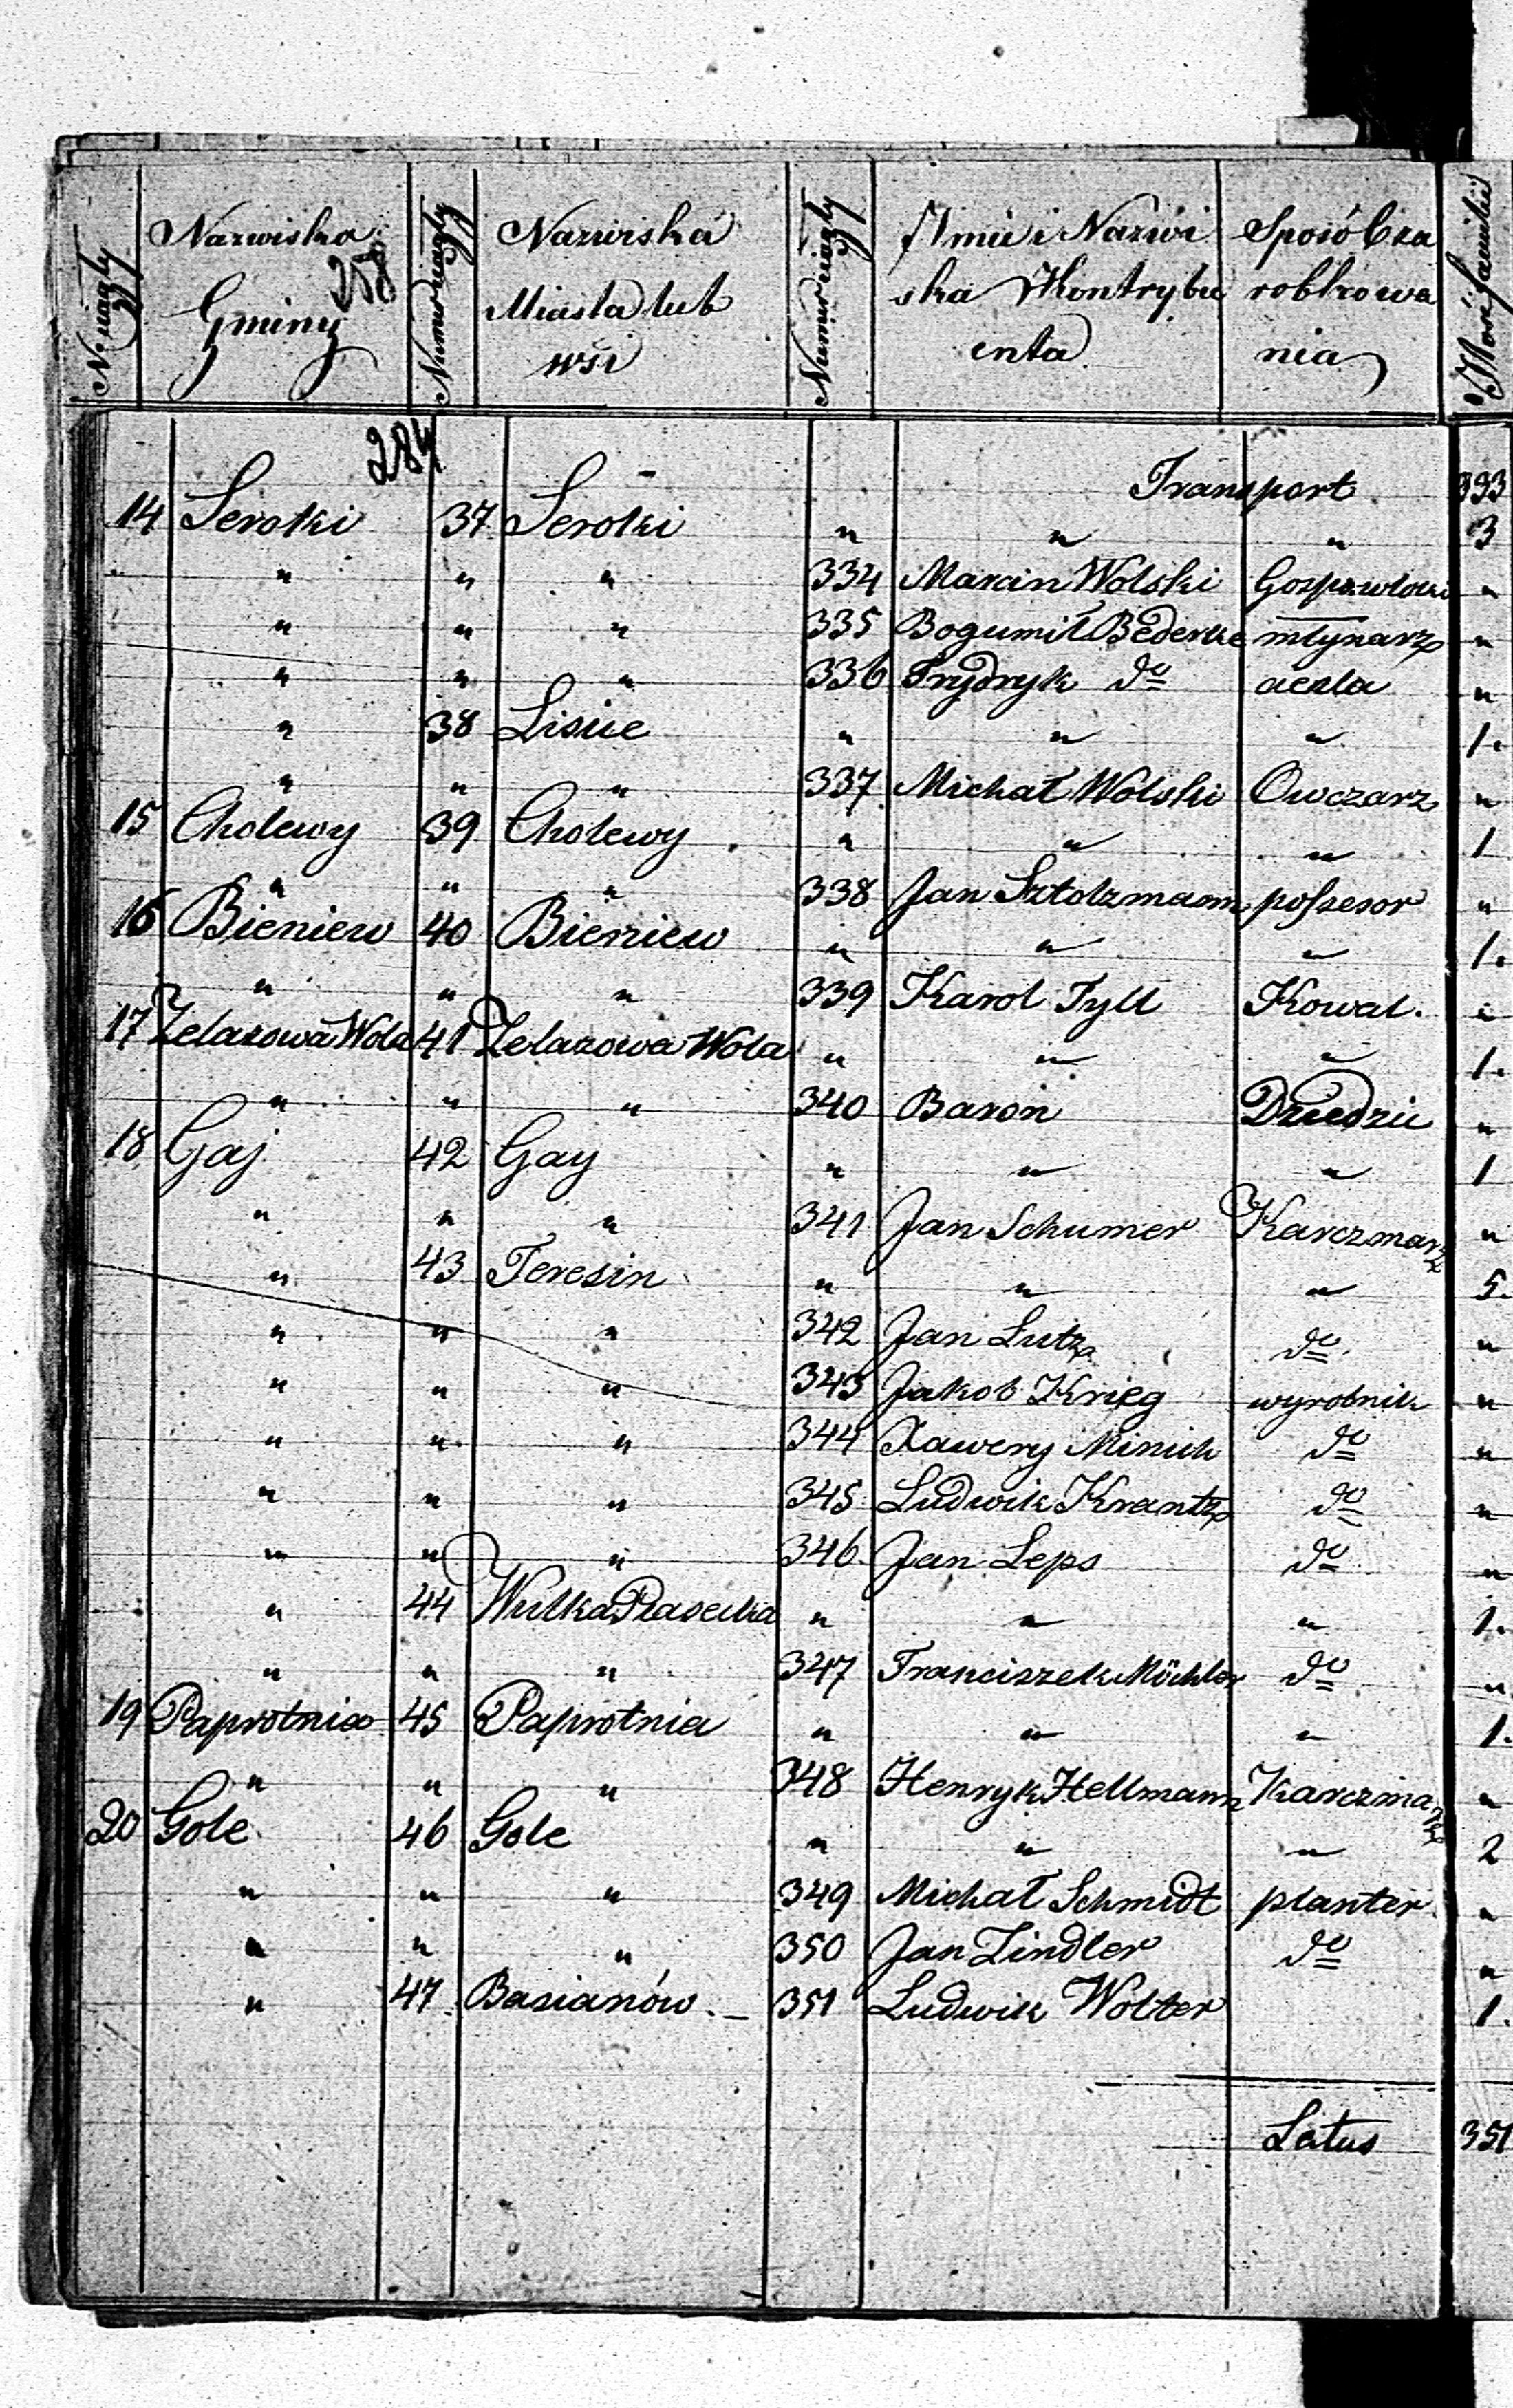 N. ciągły | Nazwiska Gminy | Numer ciągły | Nazwiska Miasta lub wsi | Numer ciągły | Imie i Nazwiska Kontrybuenta | Sposób zarobkowania | Ilość familii
258
284
Transport 333
14 Seroki 37 Seroki " " " 3
" " " 334 Marcin Wolski "
" " " 335 Bogumił Bederke młynarz "
" " " 336 Frydryk do "
" 38 Lisice " " " 1.
" " " 337 Michał Wolski Owczarz "
15 Cholewy 39 Cholewy " " " 1
" " " 338 Jan Sztolzmann possesor "
16 Bieniew 40 Bieniew " " " 1.
" " " 339 Karol Tyll Kowal. "
17 Zelazowa Wola 41 Zelazowa Wola " " " 1.
" " " 340 Baron Dziedzic "
18 Gaj 42 Gay " " " 1
" " " 341 Jan Schumer Karczmarz "
" 43 Teresin " " " 5.
" " " 342 Jan Lutz do "
" " " 343 Jakob Krieg wyrobnik "
" " " 344 Xawery Minich do "
" " " 345 Ludwik Krantz do "
" " " 346 Jan Leps do "
" 44 Wulka Piasecka " " " 1.
" " " 347 Franciszek Möchler do "
19 Paprotnia 45 Paprotnia " " " 1.
" " " 348 Henryk Hellmann Karczmarz "
20 Gole 46 Gole " " " 2
" " " 349 Michał Schmidt planter "
" " " 350 Jan Zindler do "
" 47 Basianów. 351 Ludwik Wolter 1.
Latus 351